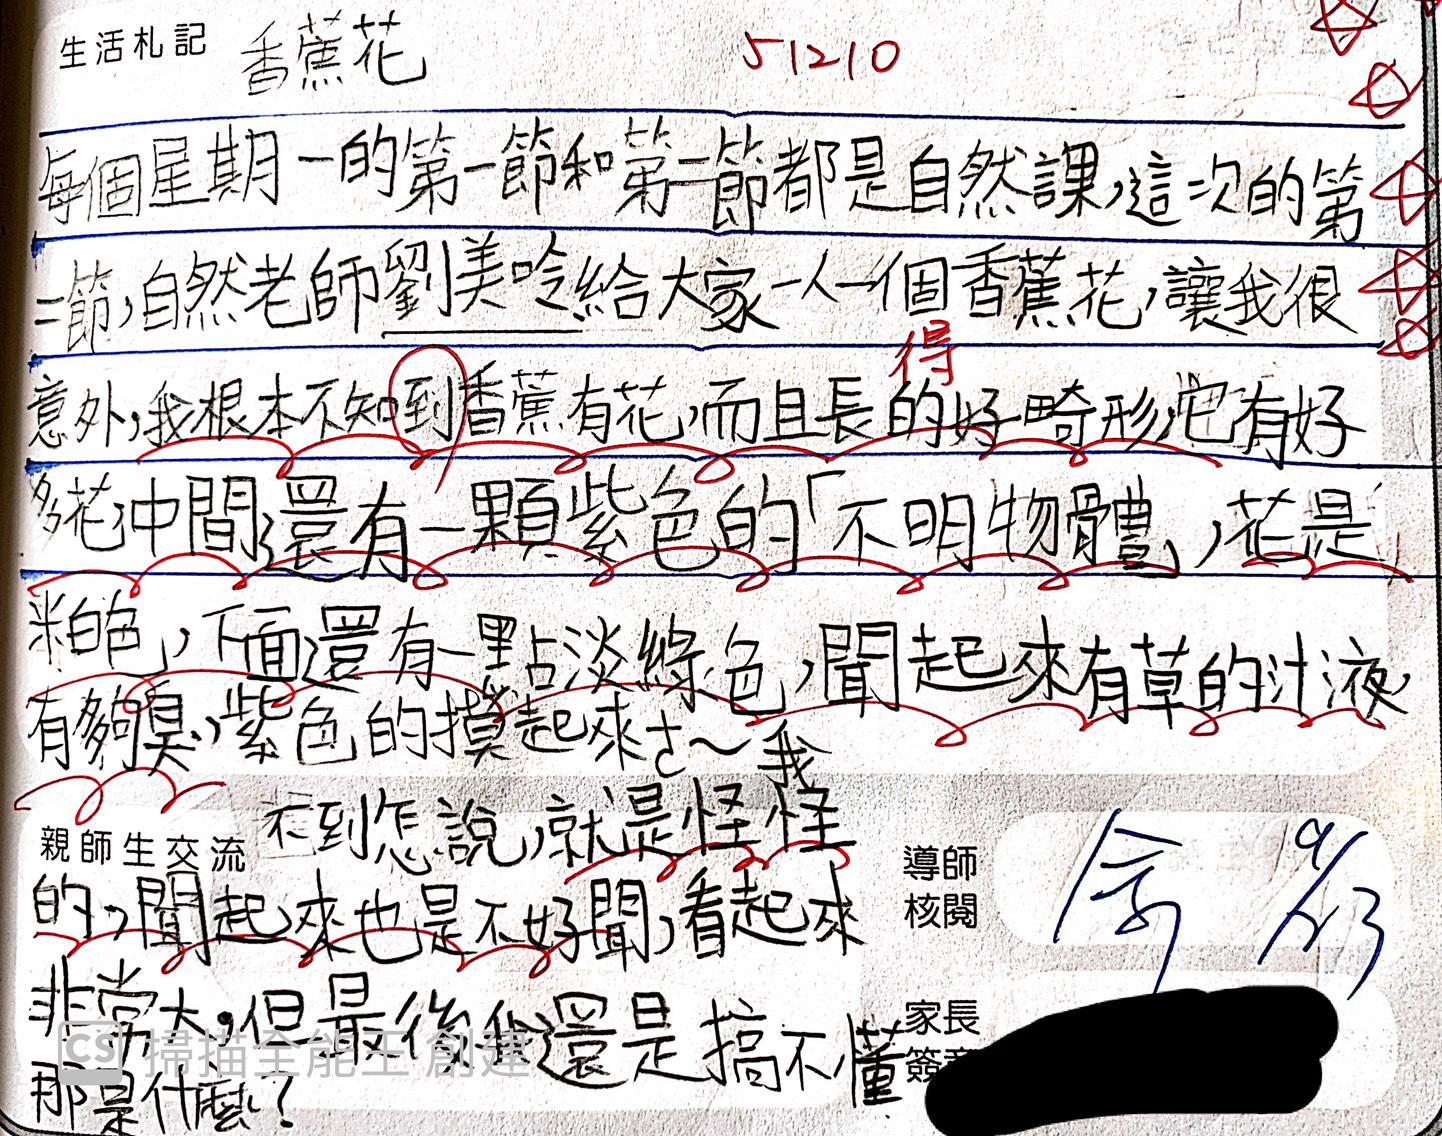 生活札記 香蕉花 51210
每個星期一的第一節和第二節都是自然課,這次的第
二節,自然老師劉美吟給大家一人一個香蕉花,讓我很
得
意外,我根本不知到香蕉有花,而且長的好畸形,它有好
多花,中間還有一顆紫色的「不明物體」,花是
米白色,下面還有一點淡綠色,聞起來有草的汁液,
有夠臭,紫色的摸起來ㄜ~我
不到怎說,就是怪怪
親師生交流
的,聞起來也是不好聞,看起來
導師
核閱
9/23
非常大,但最後我還是搞不懂
家長
那是什麼?
CS 掃描全能王 創建